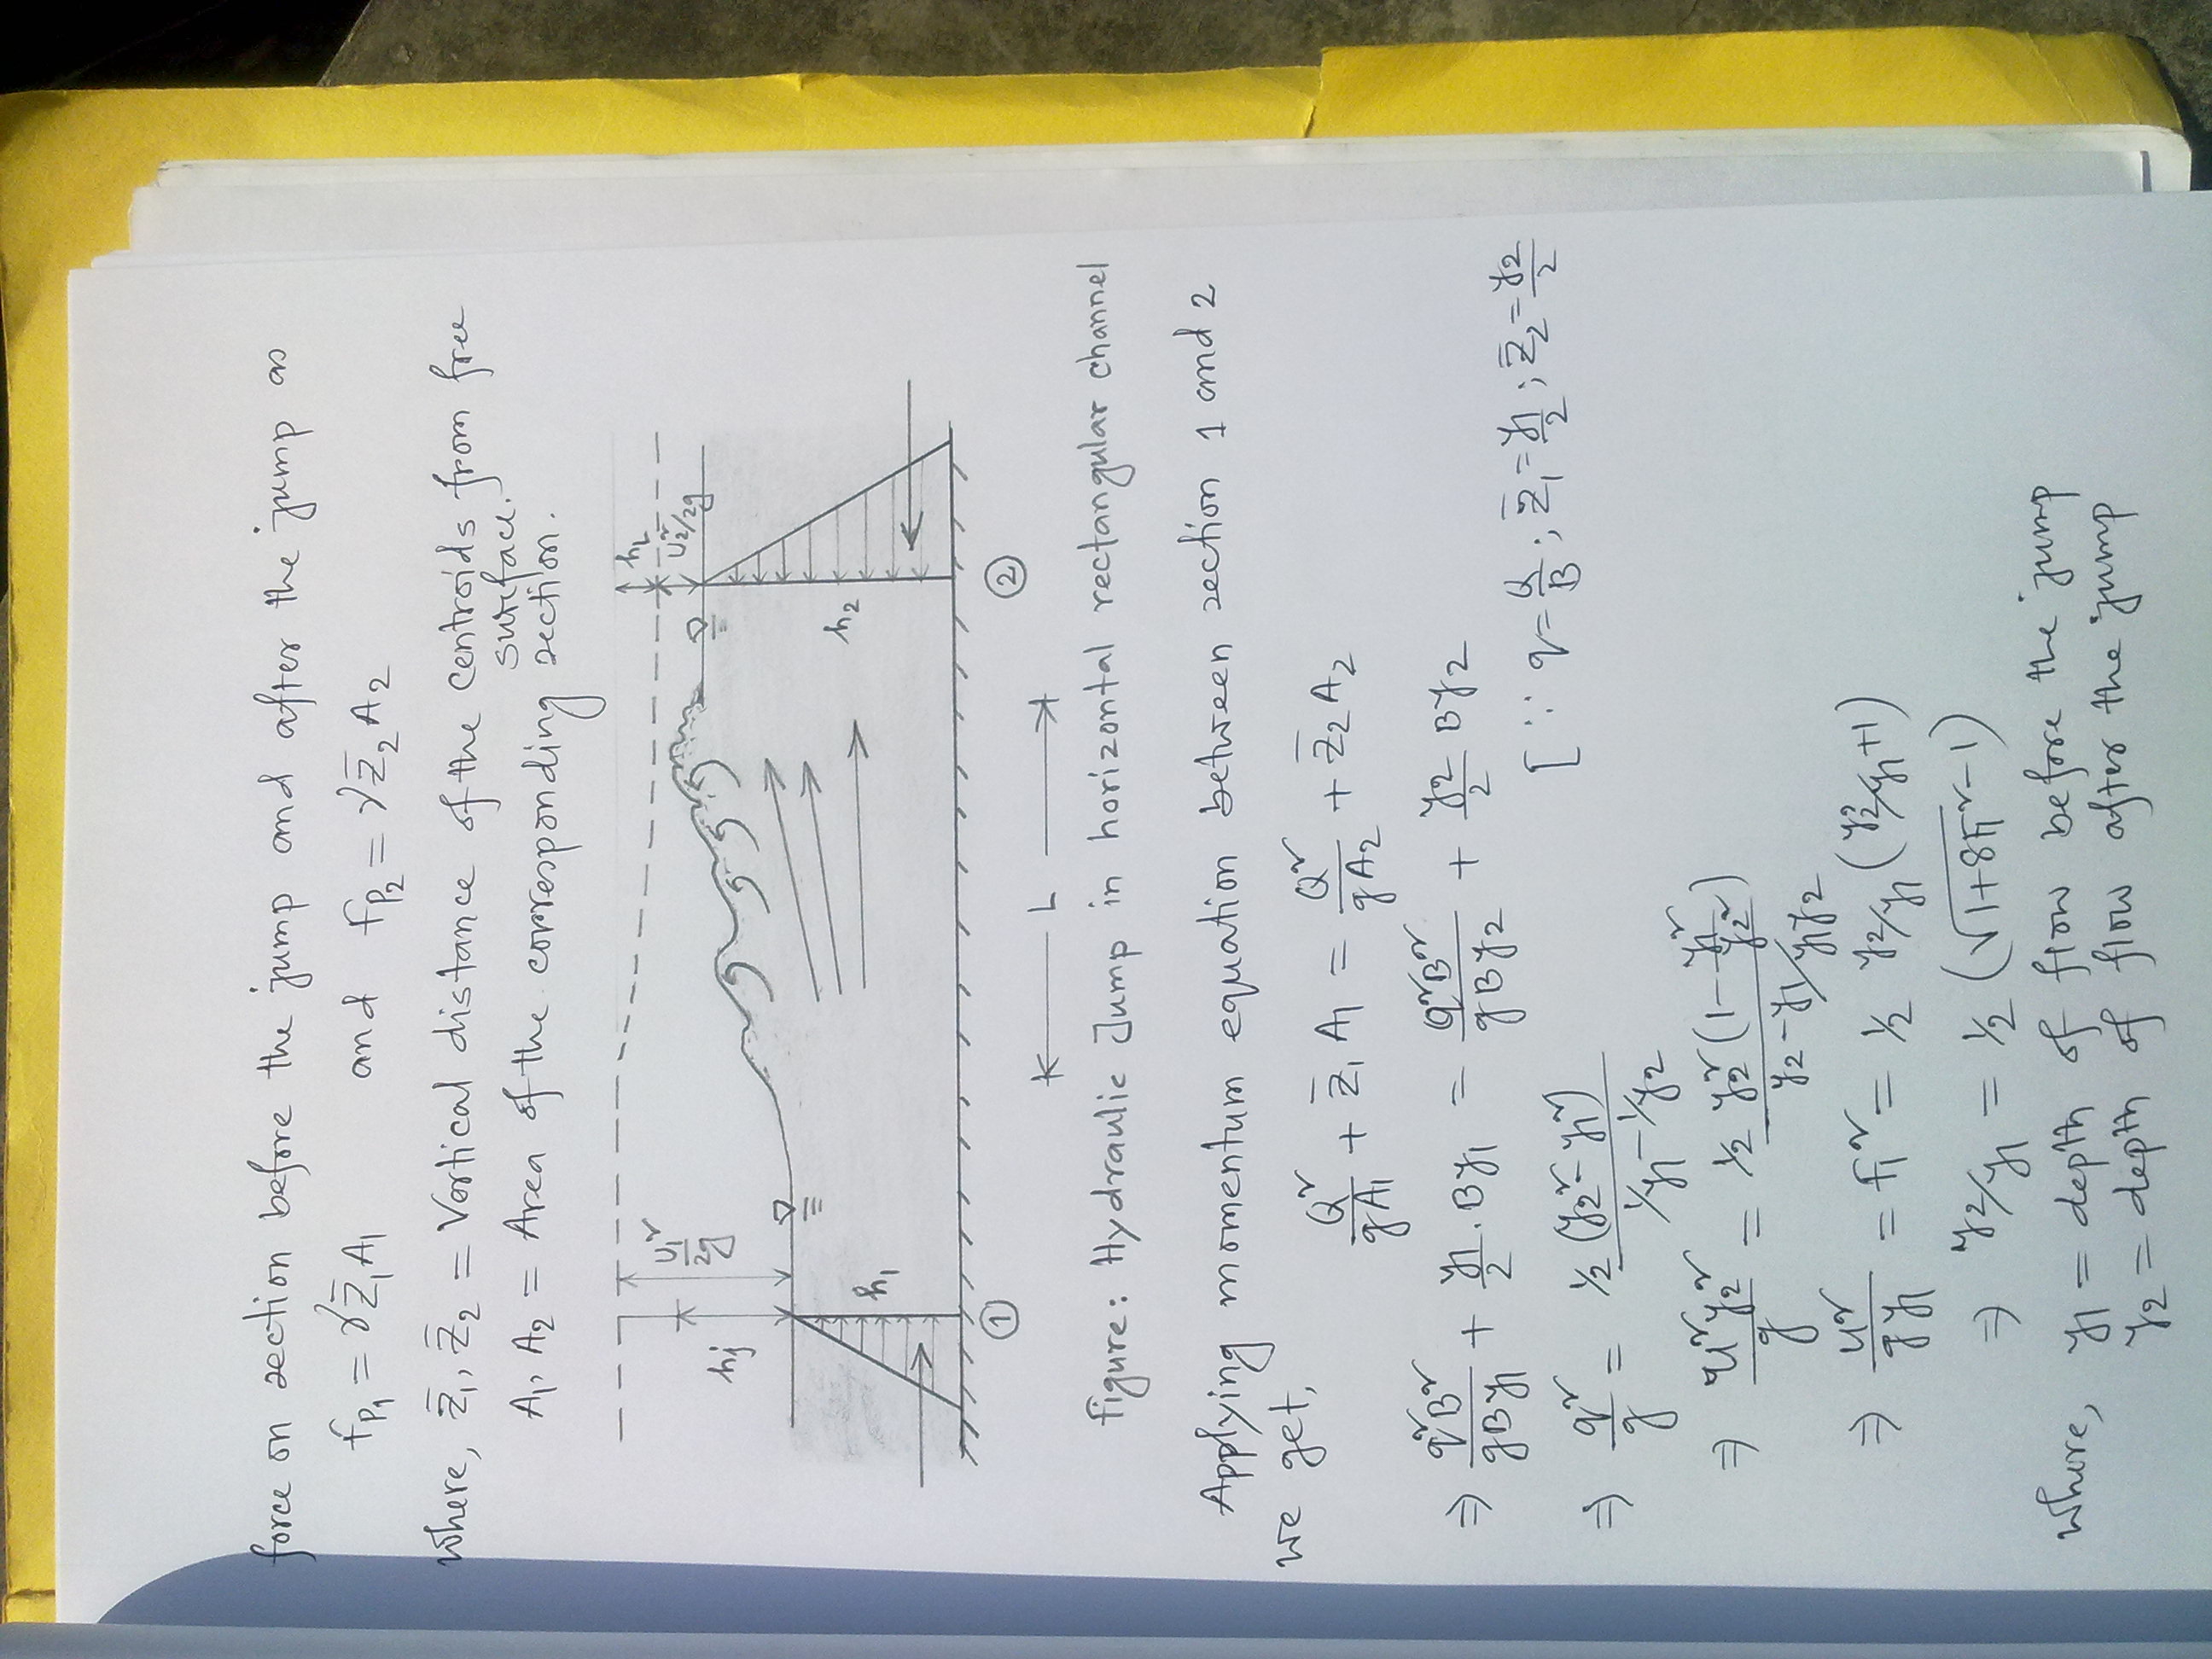 force on section before the jump and after the jump as
Fp₁ = γz̄₁A₁ and Fp₂ = γz̄₂A₂
where, z̄₁, z̄₂ = Vertical distance of the centroids from free
surface.
A₁, A₂ = Area of the corresponding section.
hj
U₁²/2g
hL
U₂²/2g
h₁
h₂
① ②
L
Figure: Hydraulic Jump in horizontal rectangular channel
Applying momentum equation between section 1 and 2
we get,
Q²/gA₁ + z̄₁A₁ = Q²/gA₂ + z̄₂A₂
⇒ q²B²/gBy₁ + y₁/2 . By₁ = q²B²/gBy₂ + y₂/2 By₂
[∵ q = Q/B ; z̄₁ = y₁/2 ; z̄₂ = y₂/2
⇒ q²/g = ½ (y₂² - y₁²) / (1/y₁ - 1/y₂)
⇒ u₁²y₂²/g = ½ y₂² (1 - y₁²/y₂²) / (y₂ - y₁/y₁y₂)
⇒ u₁²/gy₁ = F₁² = ½ y₂/y₁ (y₂/y₁ + 1)
⇒ y₂/y₁ = ½ (√1+8F₁² - 1)
where, y₁ = depth of flow before the jump
y₂ = depth of flow after the jump